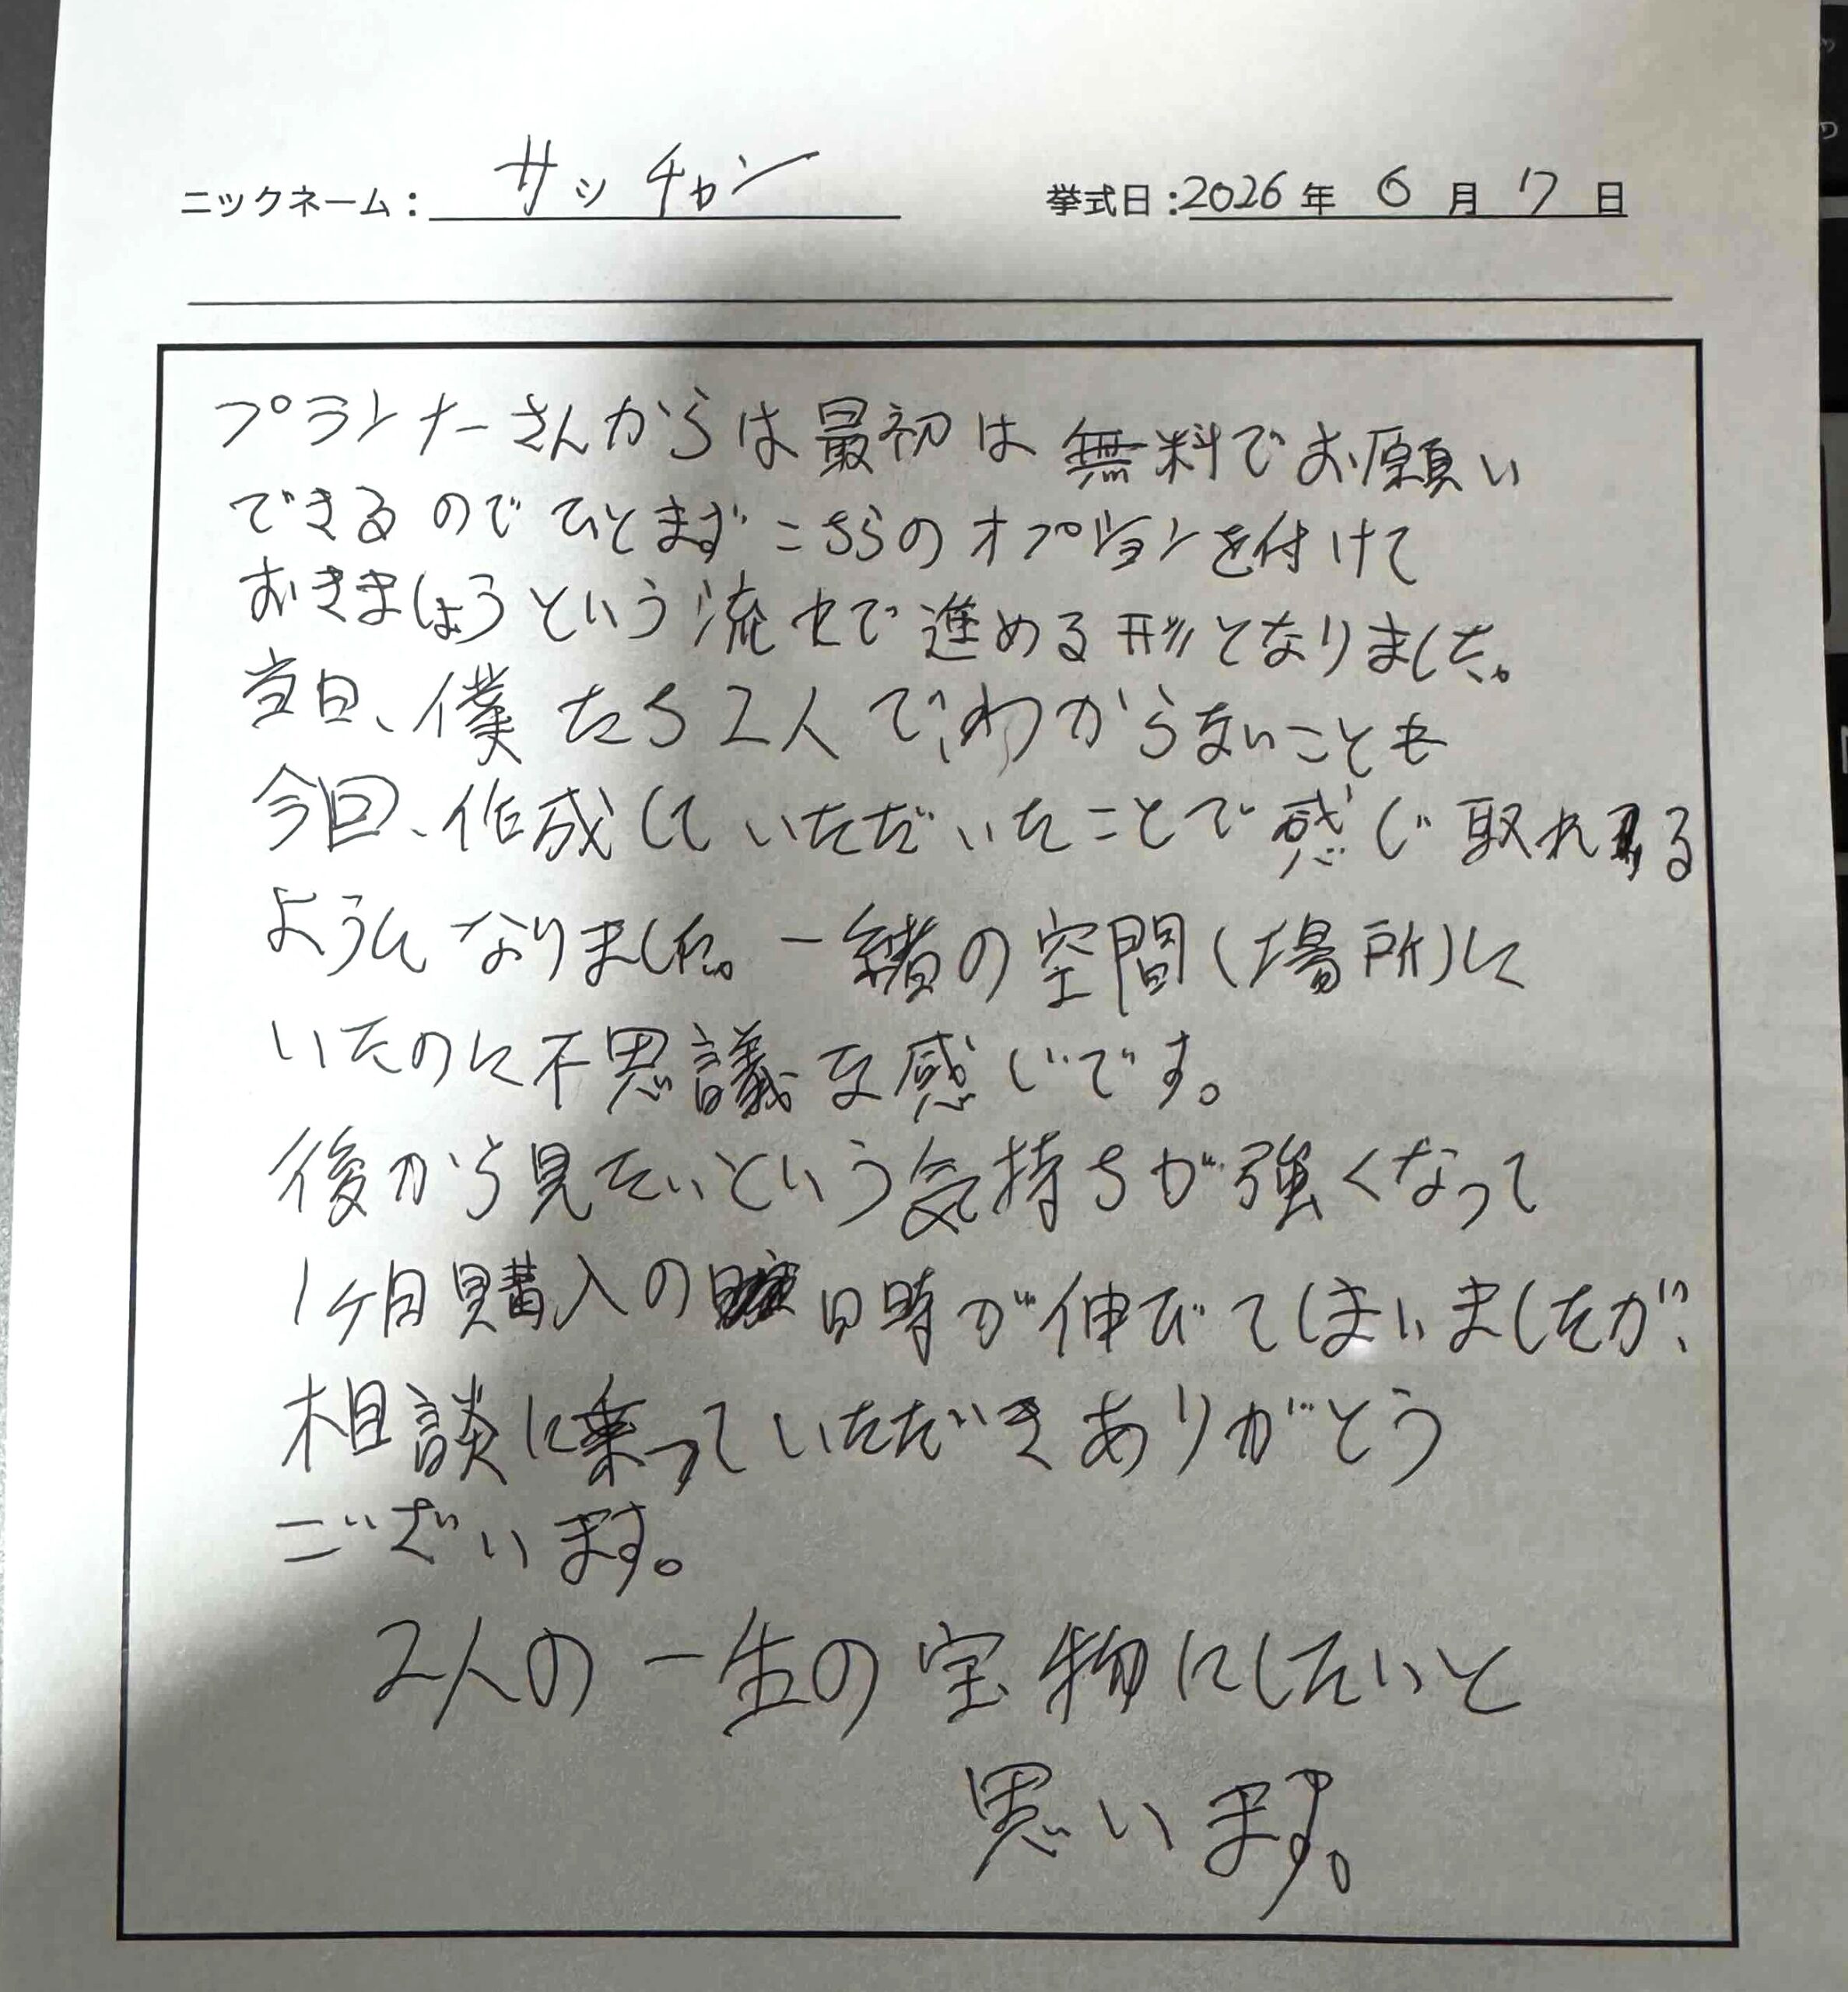 ニックネーム：サッチャン 挙式日：2026年 6月 7日
プランナーさんからは最初は無料でお願い
できるのでひとまずこちらのオプションを付けて
おきましょうという流れで進める形となりました。
当日、僕たち2人で、わからないことも
今回、作成していただいたことで感じ取れる
ようになりました。一緒の空間(場所)に
いたのに不思議な感じです。
後から見たいという気持ちが強くなって
1ヶ月購入の日時が伸びてしまいましたが、
相談に乗っていただきありがとう
ございます。
2人の一生の宝物にしたいと
思います。